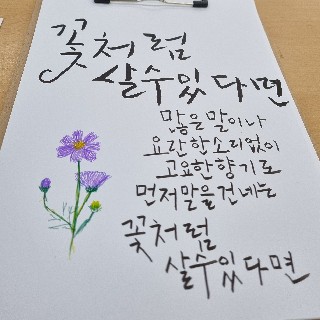 꽃처럼
살수있다면
많은 말이나
요란한소리없이
고요한향기로
먼저말을건네는
꽃처럼
살수있다면